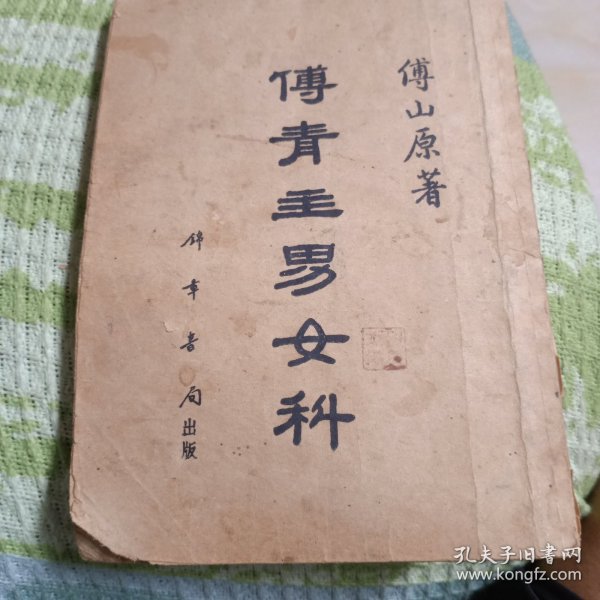 傅山原著
傅青主男女科
錦章書局出版
孔夫子旧书网
www.kongfz.com